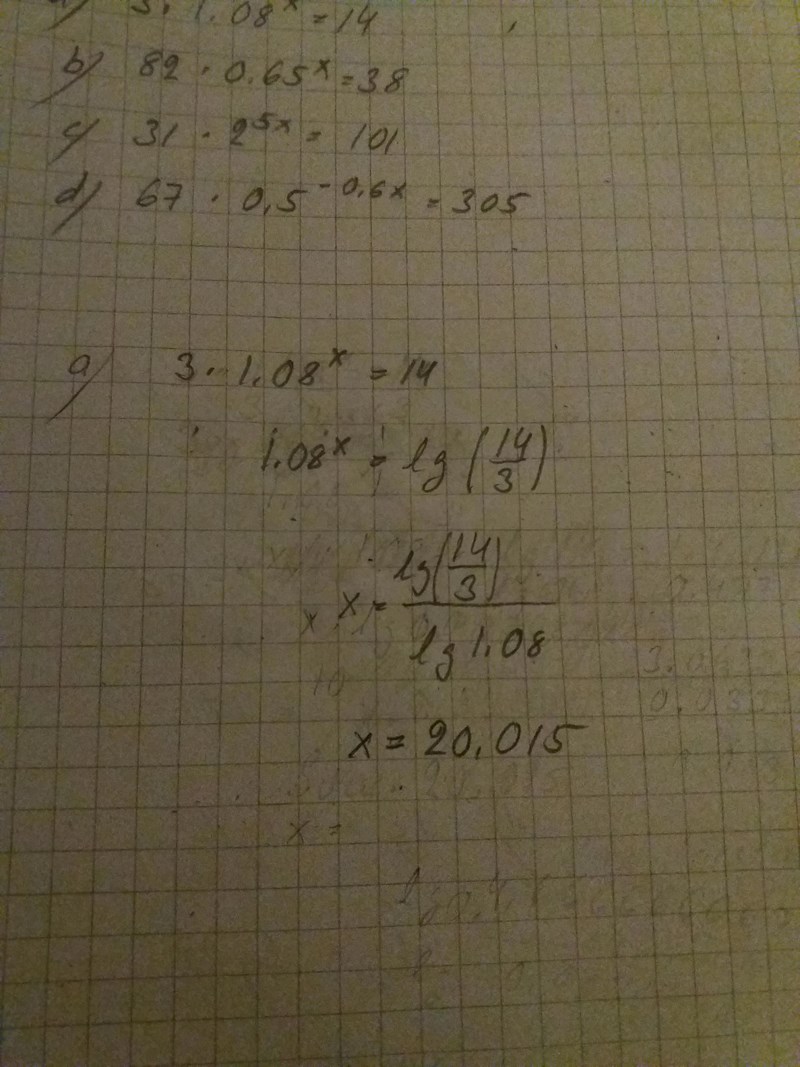 a) 3. 1.08^x = 14
b) 82 · 0.65^x = 38
c) 31 · 2^5x = 101
d) 67 · 0,5^-0,6x = 305
a) 3 · 1.08^x = 14
1.08^x = lg (14/3)
x = lg(14/3) / lg 1.08
x = 20.015
x =